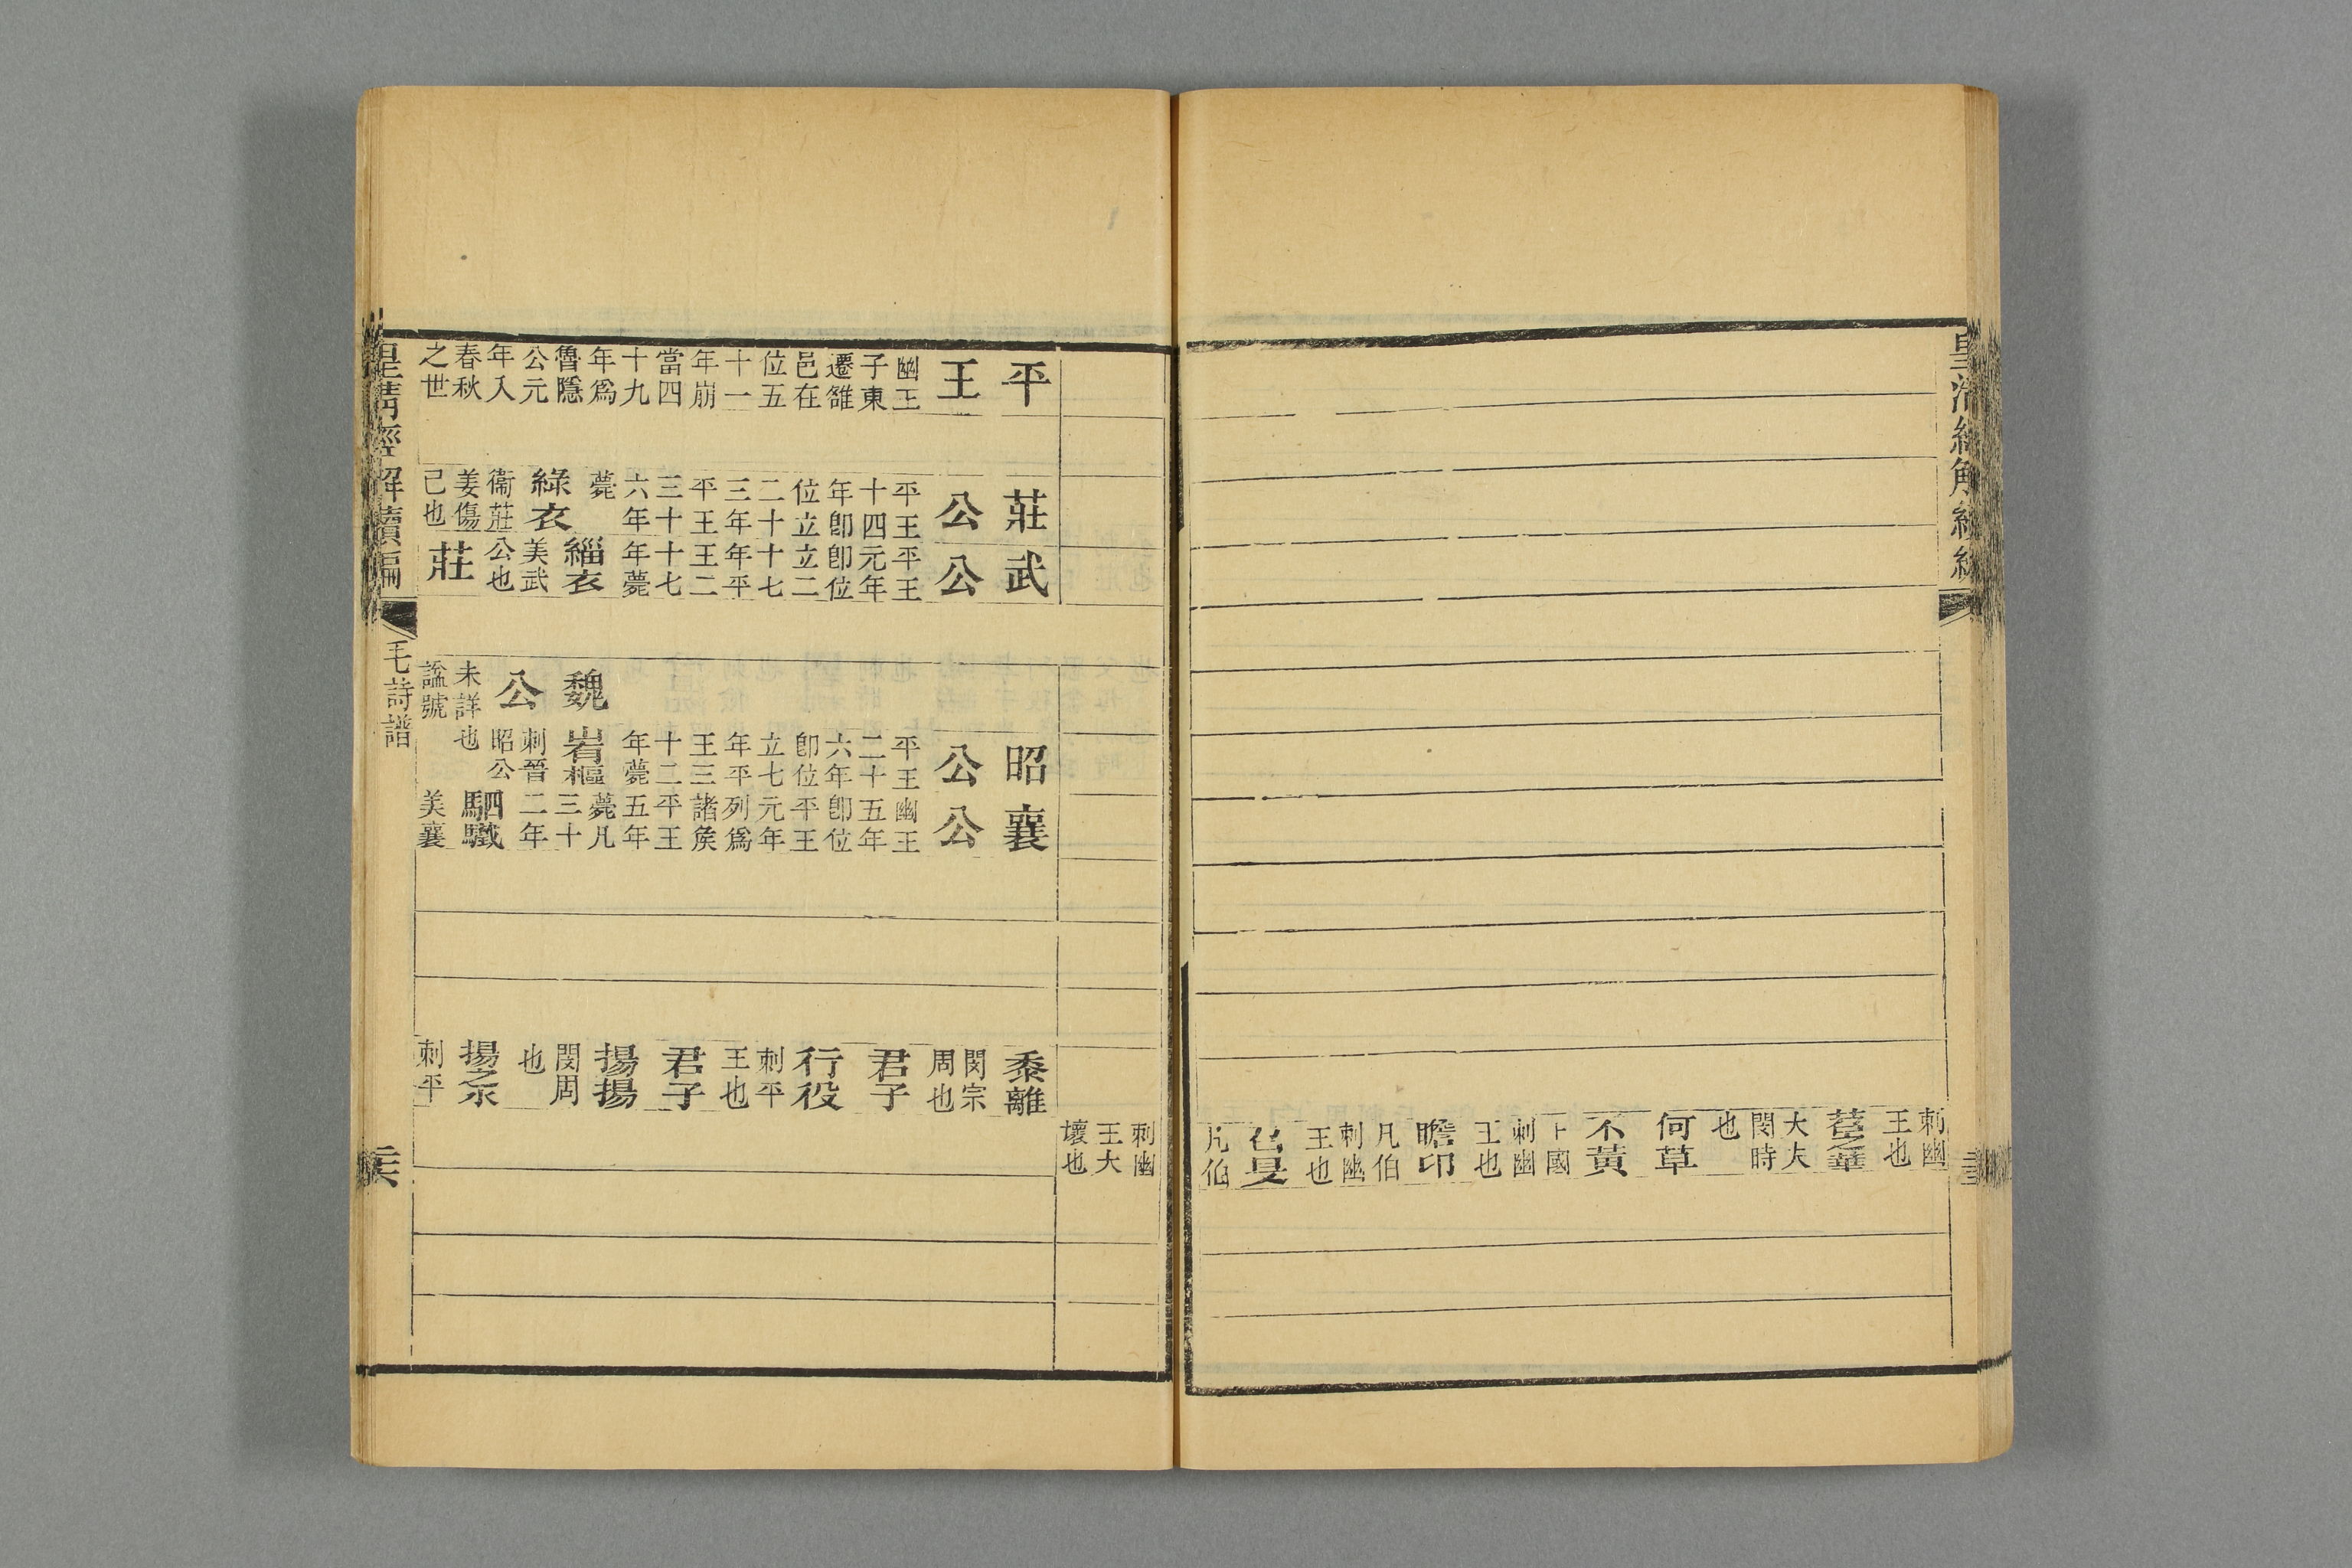 刺幽
王也
苕之華
大夫
閔時
也
何草
不黃
下國
刺幽
王也
瞻卬
凡伯
刺幽
王也
召旻
凡伯
刺幽
王大
壞也
平
王
幽王
子東
遷雒
邑在
位五
十一
年崩
當四
十九
年爲
魯隱
公元
年入
春秋
之世
莊
公
平王
十四
年卽
位立
二十
三年
平王
三十
六年
薨
綠衣
衞莊
姜傷
己也
武
公
平王
元年
卽位
立二
十七
年平
王二
十七
年薨
緇衣
美武
公也
莊
魏
公
未詳
謚號
昭
公
平王
二十
六年
卽位
立七
年平
王三
十二
年薨
山有樞
刺晉
昭公
也
襄
公
幽王
五年
卽位
平王
元年
列爲
諸矦
平王
五年
薨凡
三十
二年
駟驖
美襄
黍離
閔宗
周也
君子
行役
刺平
王也
君子
揚揚
閔周
也
揚之水
刺平
皇清經解續編
毛詩譜